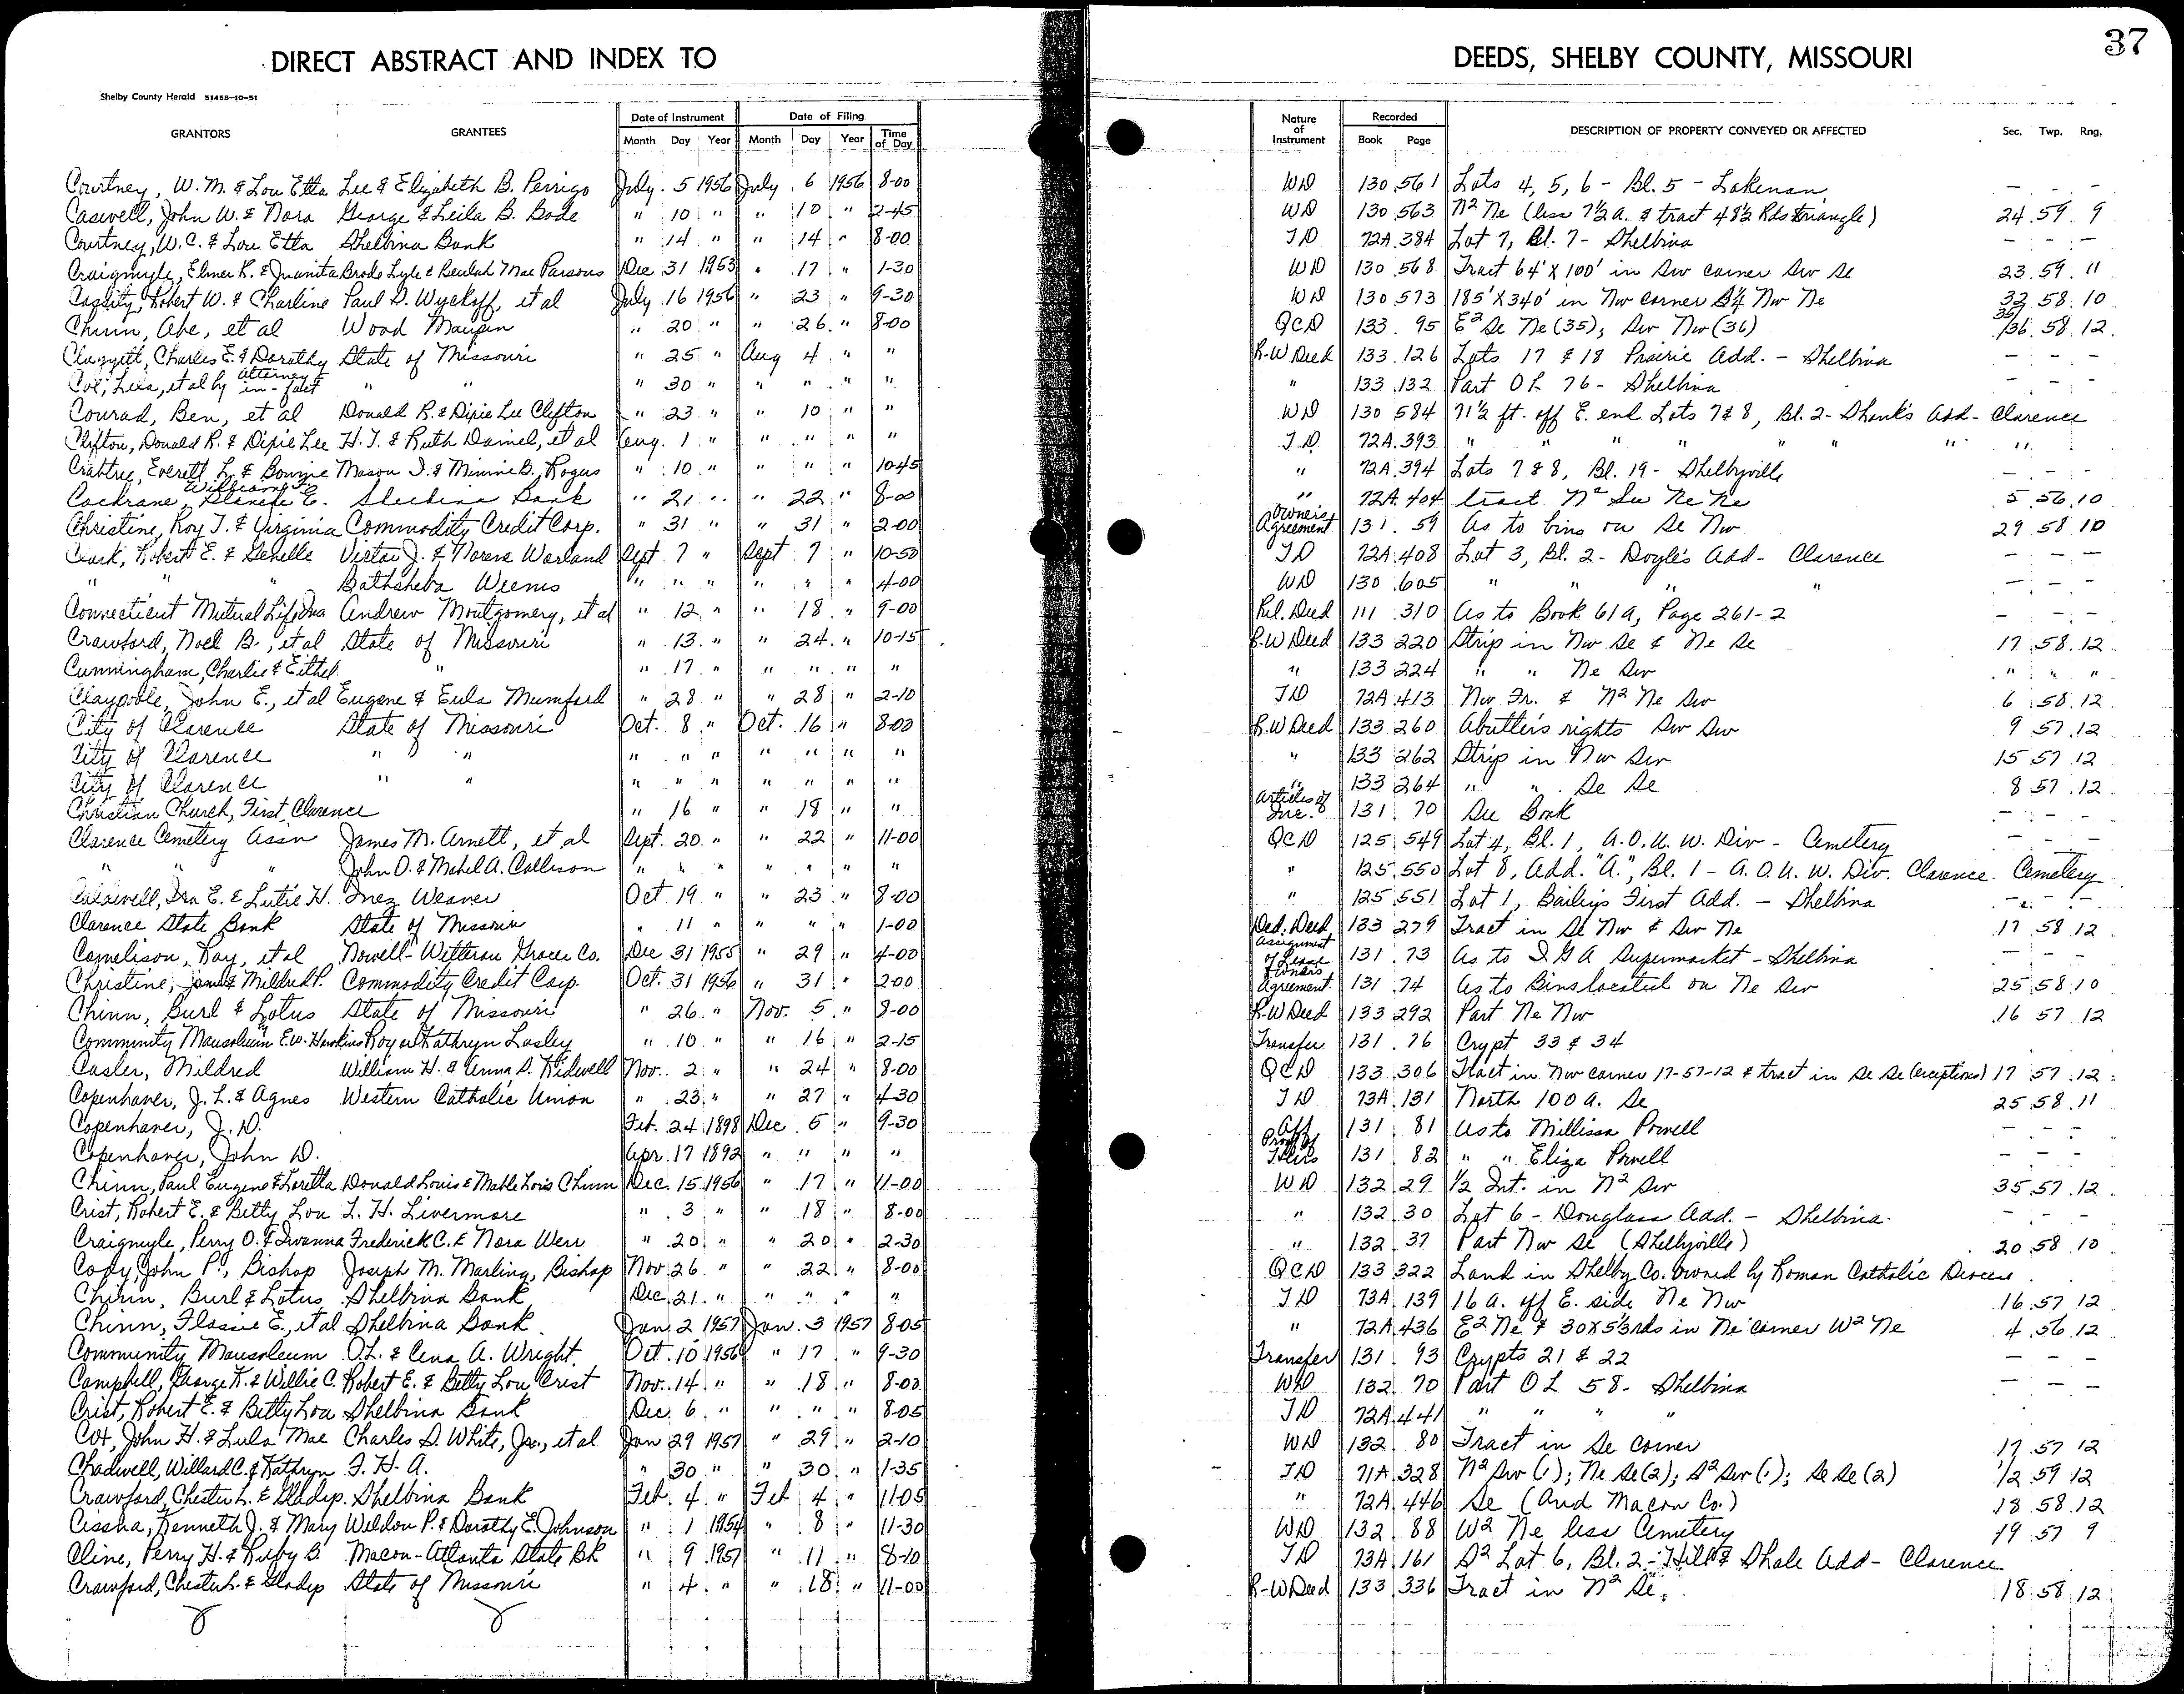 37
DIRECT ABSTRACT AND INDEX TO DEEDS, SHELBY COUNTY, MISSOURI
Shelby County Herald 51458-10-51
GRANTORS GRANTEES Date of Instrument Date of Filing Nature of Instrument Recorded DESCRIPTION OF PROPERTY CONVEYED OR AFFECTED Sec. Twp. Rng.
Month Day Year Month Day Year Time of Day Book Page
Courtney, W. M. & Lou Etta Lee & Elizabeth B. Perrigo July 5 1956 July 6 1956 8-00 WD 130 561 Lots 4, 5, 6 - Bl. 5 - Lakenan - - -
Caswell, John W. & Nora George & Leila B. Bode " 10 " " 10 " 2-45 WD 130 563 N2 Ne (less 7½ a. & tract 48½ Rds triangle) 24 59 9
Courtney, W. C. & Lou Etta Shelbina Bank " 14 " " 14 " 8-00 TD 72A 384 Lot 7, Bl. 7 - Shelbina - - -
Craigmyle, Elmer R. & Juanita Brode Lyle & Beulah Mae Parsons Dec 31 1953 " 17 " 1-30 WD 130 568 Tract 64' X 100' in Sw corner Sw Se 23 59 11
Cassity, Robert W. & Charline Paul D. Wyckoff, et al July 16 1956 " 23 " 9-30 WD 130 573 185' X 340' in Nw corner Nw Ne 32 58 10
Chinn, Abe, et al Wood Maupin " 20 " " 26 " 8-00 QCD 133 95 E2 Se Ne (35); Sw Nw (36) 35/36 58 12
Claggett, Charles E. & Dorothy State of Missouri " 25 " Aug 4 " " R-W Deed 133 126 Lots 17 & 18 Prairie Add. - Shelbina - - -
Col, Lela, et al by attorney in-fact " " " 30 " " " " " " 133 132 Part OL 76 - Shelbina - - -
Conrad, Ben, et al Donald R. & Dixie Lee Clifton " 23 " " 10 " " WD 130 584 71½ ft. off E. end Lots 7 & 8, Bl. 2 - Shank's Add - Clarence
Clifton, Donald R. & Dixie Lee H. T. & Ruth Daniel, et al Aug. 1 " " " " " TD 72A 393 " " " " " " " "
Crabtree, Everett L. & Bonnie Mason I. & Minnie B. Rogers " 10 " " " " 10-45 " 72A 394 Lots 7 & 8, Bl. 19 - Shelbyville - - -
Cochrane, William & E. Shelbina Bank " 21 " " 22 " 8-00 " 72A 404 tract N2 Sw Ne Ne 5 56 10
Christine, Roy T. & Virginia Commodity Credit Corp. " 31 " " 31 " 2-00 Owner's Agreement 131 59 As to bins on Se Nw 29 58 10
Clark, Robert E. & Genelle Victor J. & Norene Worland Sept 7 " Sept 7 " 10-50 TD 72A 408 Lot 3, Bl. 2 - Doyle's Add - Clarence - - -
" " " Bathsheba Weems " " " " " " 4-00 WD 130 605 " " " " - - -
Connecticut Mutual Life Ins Andrew Montgomery, et al " 12 " " 18 " 9-00 Rel. Deed 111 310 As to Book 61A, Page 261-2 - - -
Crawford, Noel B., et al State of Missouri " 13 " " 24 " 10-15 R-W Deed 133 220 Strip in Nw Se & Ne Se 17 58 12
Cunningham, Charlie & Eithel " " 17 " " " " " " 133 224 " " Ne Sw " " "
Claypoole, John E., et al Eugene & Eula Mumford " 28 " " 28 " 2-10 TD 72A 413 Nw Fr. & N2 Ne Sw 6 58 12
City of Clarence State of Missouri Oct. 8 " Oct. 16 " 8-00 R-W Deed 133 260 Abutter's rights Sw Sw 9 57 12
City of Clarence " " " " " " " " " " 133 262 Strip in Nw Sw 15 57 12
City of Clarence " " " " " " " " " " 133 264 " " Se Se 8 57 12
Christian Church, First, Clarence " 16 " " 18 " " Articles of Inc. 131 70 See Book
Clarence Cemetery Assn James M. Arnett, et al Sept. 20 " " 22 " 11-00 QCD 125 549 Lot 4, Bl. 1, A. O. U. W. Div - Cemetery - - -
" " " John O. & Mabel A. Collison " " " " " " " " 125 550 Lot 8, Add. "A", Bl. 1 - A. O. U. W. Div. Clarence Cemetery
Caldwell, Ira E. & Lutie H. Inez Weaver Oct 19 " " 23 " 8-00 " 125 551 Lot 1, Bailey's First Add. - Shelbina - - -
Clarence State Bank State of Missouri " 11 " " " " 1-00 Ded. Deed 133 279 Tract in Se Nw & Sw Ne 17 58 12
Cornelison, Ray, et al Nowell-Witterau Grocer Co. Dec 31 1955 " 29 " 4-00 Assignment of Lease 131 73 As to I G A Supermarket - Shelbina - - -
Christine, James & Mildred P. Commodity Credit Corp. Oct. 31 1956 " 31 " 2-00 Owners Agreement 131 74 As to Bins located on Ne Sw 25 58 10
Chinn, Burl & Lotus State of Missouri " 26 " Nov. 5 " 8-00 R-W Deed 133 292 Part Ne Nw 16 57 12
Community Mausoleum E. W. Hawkins Roy or Kathryn Lasley " 10 " " 16 " 2-15 Transfer 131 76 Crypt 33 & 34
Casler, Mildred William H. & Anna D. Kidwell Nov. 2 " " 24 " 8-00 QCD 133 306 Tract in Nw corner 17-57-12 & tract in Se Se (exceptions) 17 57 12
Copenhaver, J. L. & Agnes Western Catholic Union " 23 " " 27 " 4-30 TD 73A 131 North 100 a. Se 25 58 11
Copenhaver, J. D. Feb. 24 1898 Dec 5 " 9-30 Aff 131 81 As to Millissa Powell - - -
Copenhaver, John D. Apr. 17 1892 " " " " Proof of Heirs 131 82 " " Eliza Powell - - -
Chinn, Paul Eugene & Loretta Donald Louis & Mable Lois Chinn Dec. 15 1956 " 17 " 11-00 WD 132 29 1/2 Int. in N2 Sw 35 57 12
Crist, Robert E. & Betty Lou L. H. Livermore " 3 " " 18 " 8-00 " 132 30 Lot 6 - Douglass Add. - Shelbina - - -
Craigmyle, Perry O. & Iwanna Frederick C. & Nora Werr " 20 " " 20 " 2-30 " 132 37 Part Nw Se (Shelbyville) 20 58 10
Cody, John P., Bishop Joseph M. Marling, Bishop Nov 26 " " 22 " 8-00 QCD 133 322 Land in Shelby Co. owned by Roman Catholic Diocese
Chinn, Burl & Lotus Shelbina Bank Dec 21 " " " " " TD 73A 139 16 a. off E. side Ne Nw 16 57 12
Chinn, Flossie E., et al Shelbina Bank Jan. 2 1957 Jan. 3 1957 8-05 " 72A 436 E2 Ne & 30 X 53 rds in Ne corner W2 Ne 4 56 12
Community Mausoleum O. L. & Cena A. Wright Oct. 10 1956 " 17 " 9-30 Transfer 131 93 Crypts 21 & 22 - - -
Campbell, George K. & Willie C. Robert E. & Betty Lou Crist Nov. 14 " " 18 " 8-00 WD 132 70 Part OL 58 - Shelbina - - -
Crist, Robert E. & Betty Lou Shelbina Bank Dec. 6 " " " " 8-05 TD 72A 441 " " " "
Cox, John H. & Lula Mae Charles D. White, Jr., et al Jan 29 1957 " 29 " 2-10 WD 132 80 Tract in Se corner 17 57 12
Chadwell, Willard C. & Kathryn F. H. A. " 30 " " 30 " 1-35 TD 71A 328 N2 Sw (1); Ne Se (2); S2 Sw (1); Se Se (2) 1/2 59 12
Crawford, Chester L. & Gladys Shelbina Bank Feb. 4 " Feb 4 " 11-05 " 72A 446 Se (And Macon Co.) 18 58 12
Cissna, Kenneth J. & Mary Weldon P. & Dorothy E. Johnson " 1 1954 " 8 " 11-30 WD 132 88 W2 Ne less Cemetery 19 57 9
Cline, Perry H. & Ruby B. Macon-Atlanta State Bk " 9 1957 " 11 " 8-10 TD 73A 161 S2 Lot 6, Bl. 2 - Hill & Shale Add - Clarence
Crawford, Chester L. & Gladys State of Missouri " 4 " " 18 " 11-00 R-W Deed 133 336 Tract in N2 Se. 18 58 12